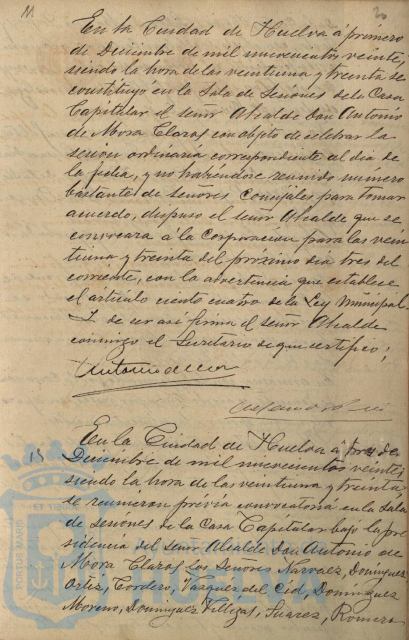 11
20
En la Ciudad de Huelva á primero
de Diciembre de mil novecientos veinte,
siendo la hora de las veintiuna y treinta se
constituyó en la Sala de Sesiones de la Casa
Capitular el señor Alcalde Don Antonio
de Mora Claros con objeto de celebrar la
sesión ordinaria correspondiente al día de
la fecha, y no habiendose reunido número
bastante de señores Concejales para tomar
acuerdo, dispuso el señor Alcalde que se
convocara á la Corporación para las vein
tiuna y treinta del próximo día tres del
corriente, con la advertencia que establece
el artículo ciento cuatro de la Ley Municipal.
Y de ser así firma el señor Alcalde
conmigo el Secretario de que certifico;
Antonio de Mora
15
En la Ciudad de Huelva á tres de
Diciembre de mil novecientos veinte
siendo la hora de las veintiuna y treinta,
se reunieron prévia convocatoria en la Sala
de sesiones de la Casa Capitular bajo la pre
sidencia del señor Alcalde Don Antonio de
Mora Claros los Señores Narvaez, Dominguez
Ortiz, Cordero, Vazquez del Cid, Dominguez
Moreno, Dominguez Villegas, Suarez, Romero
PORTUS MARIS
HUELVA